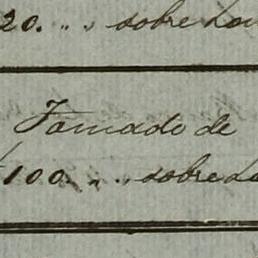 20. " " sobre Lo
Tomado de
£100. " " sobre Lo